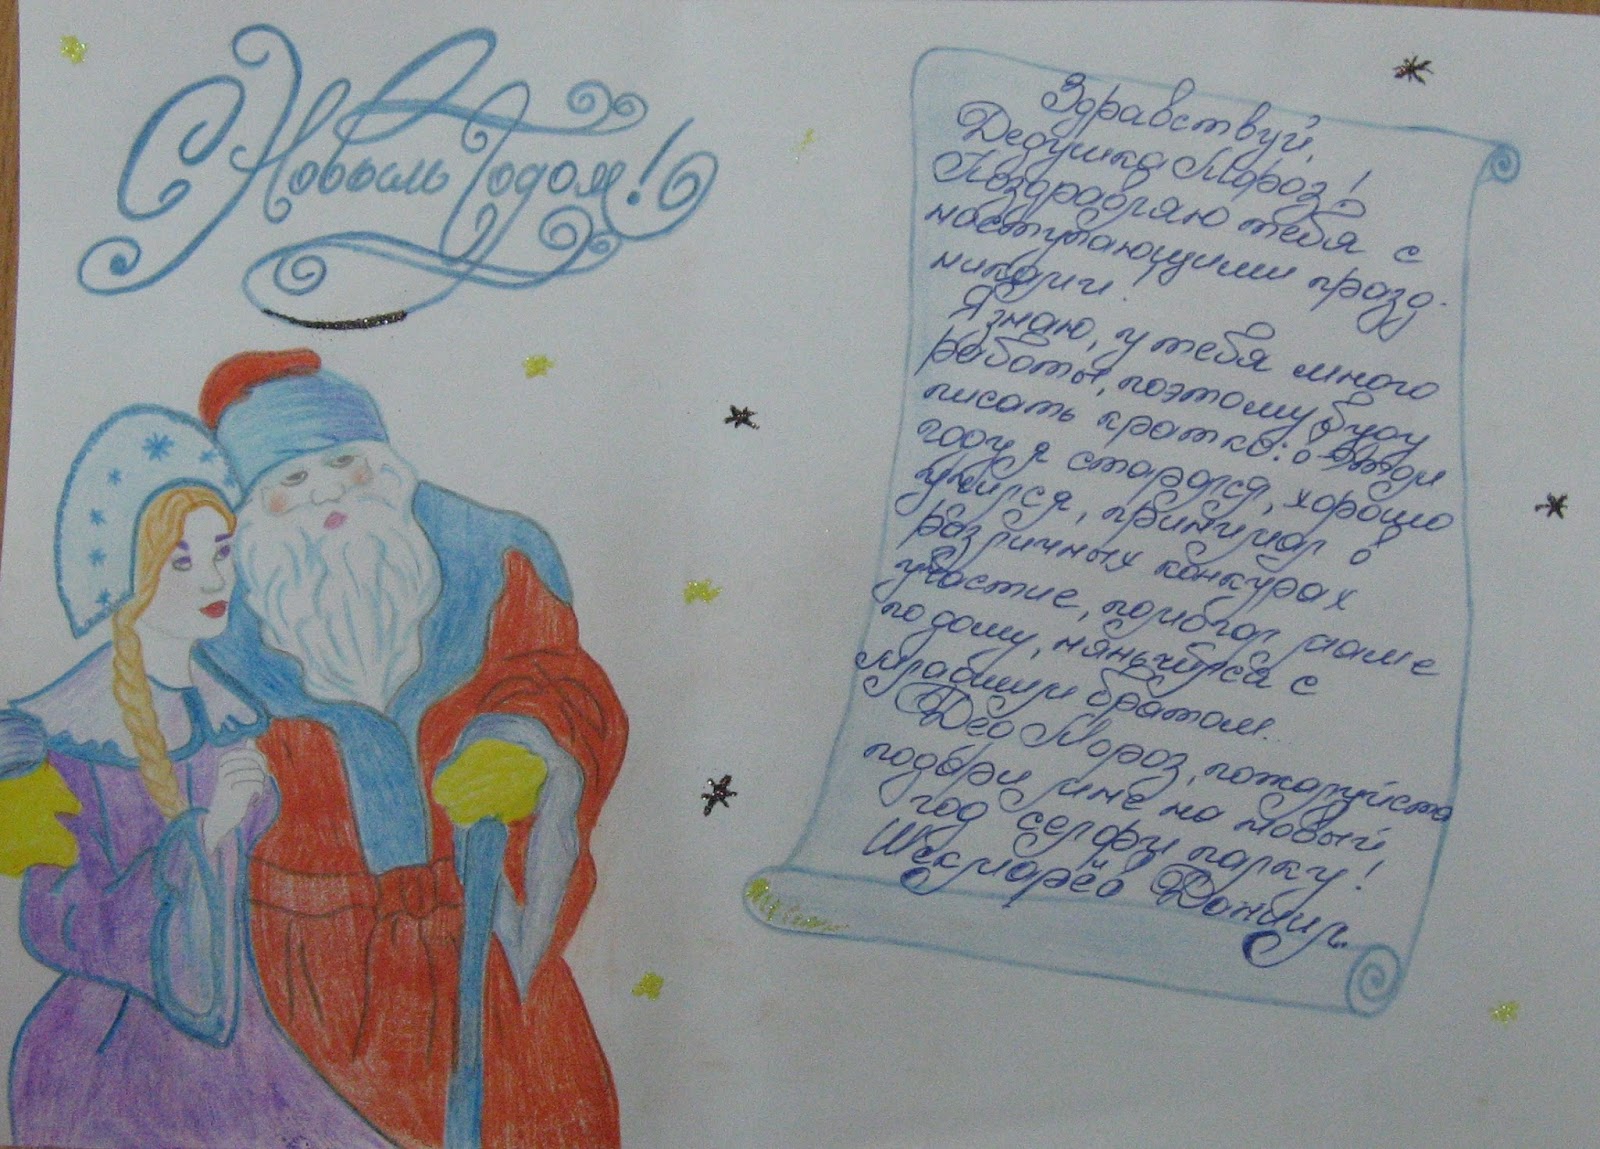 С Новым Годом!
Здравствуй,
Дедушка Мороз!
Поздравляю тебя с
наступающими празд-
никами!
Я знаю, у тебя много
работы, поэтому буду
писать кратко: в этом
году я старался, хорошо
учился, принимал в
различных конкурах
участие, помогал маме
по дому, нянчился с
младшим братом...
Дед Мороз, пожалуйста
подари мне на новый
год селфи палку!
Даниил.